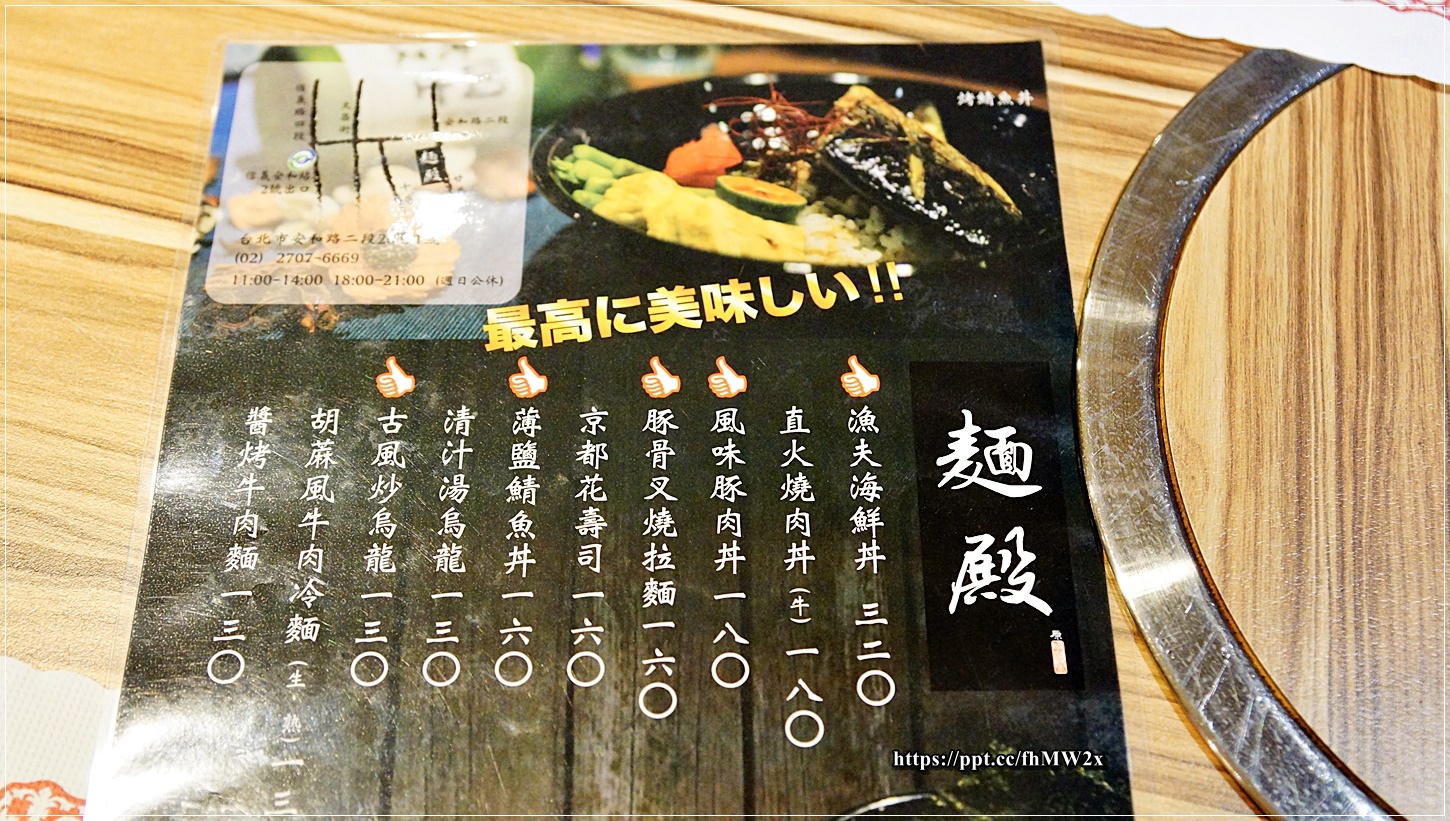 信義路四段
文昌街
安和路二段
麵殿
信義安和站
2號出口
台北市安和路二段
(02) 2707-6669
11:00-14:00 18:00-21:00 (週日公休)
烤鯖魚丼
最高に美味しい!!
麵殿
漁夫海鮮丼 三二〇
直火燒肉丼(牛)一八〇
風味豚肉丼 一八〇
豚骨叉燒拉麵一六〇
京都花壽司 一六〇
薄鹽鯖魚丼 一六〇
清汁湯烏龍 一三〇
古風炒烏龍 一三〇
胡蔴風牛肉冷麵(生、熟)一三
醬烤牛肉麵 一三〇
https://ppt.cc/fhMW2x